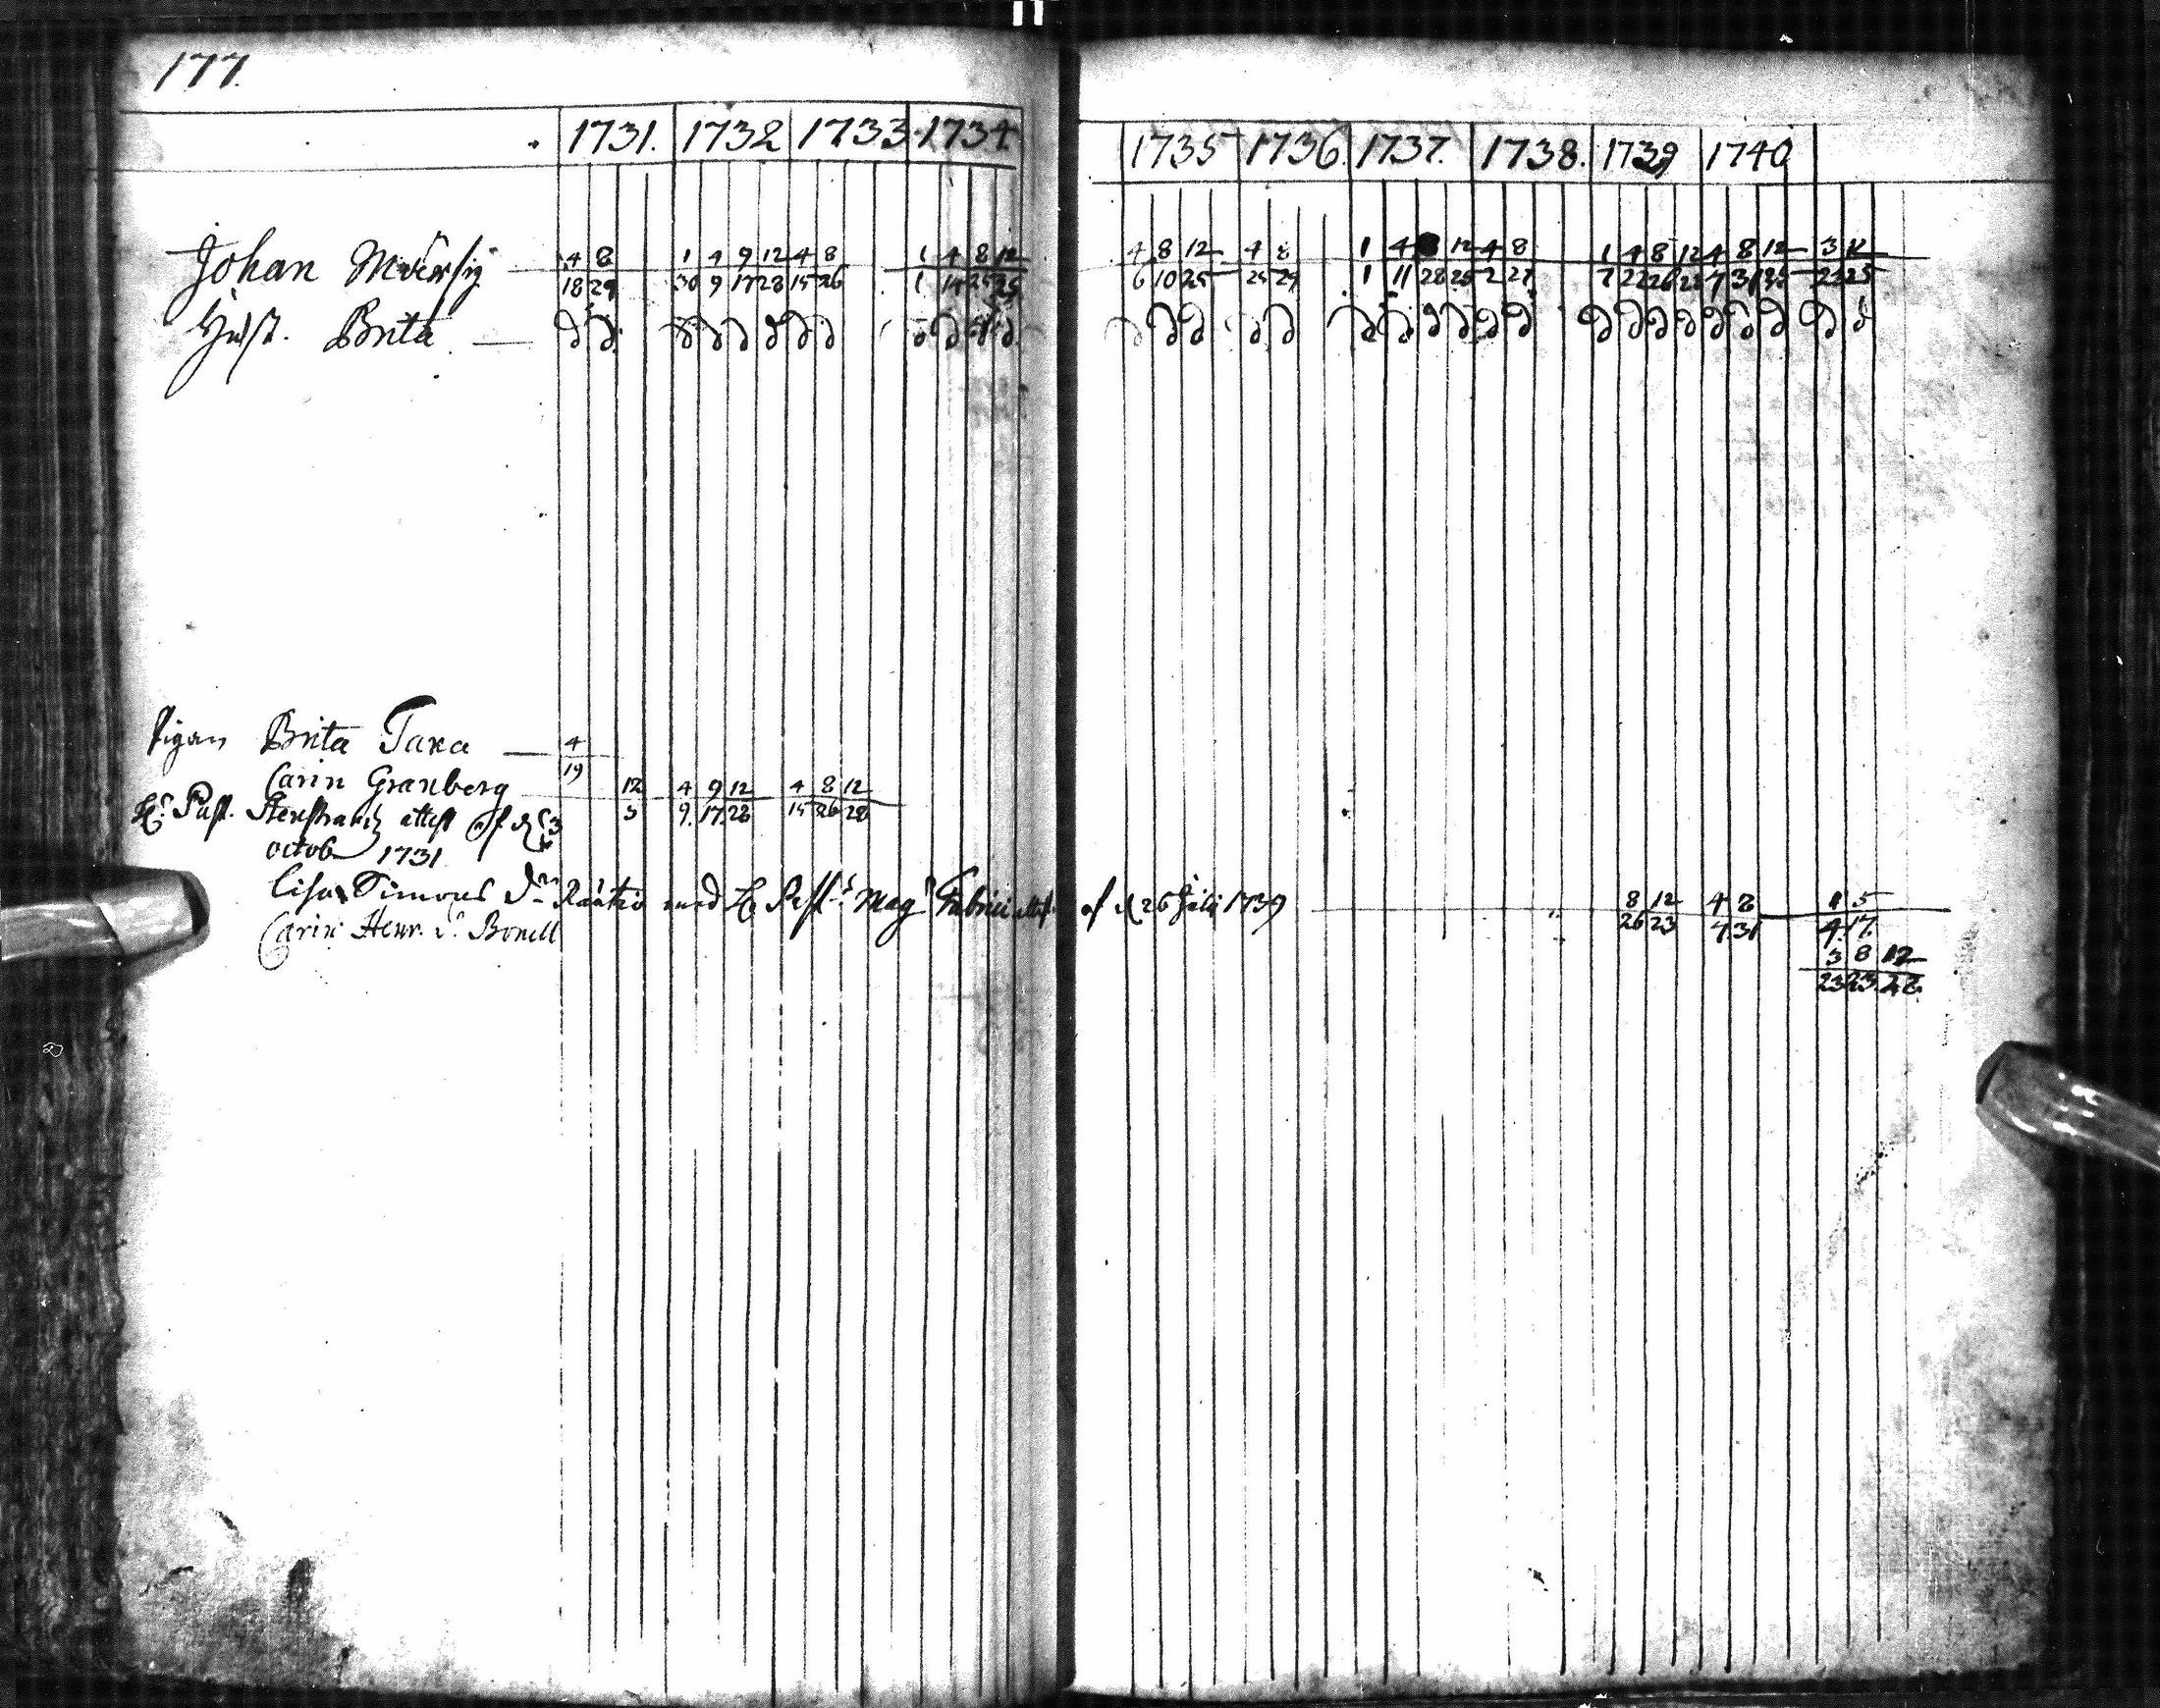 177.
1731. 1732 1733 1734 1735 1736. 1737. 1738. 1739 1740
4 8 1 4 9 12 4 8 1 4 8 12 4 8 12 4 8 1 4 8 12 4 8 1 4 8 12 4 8 12 3 12
Johan
18 29 30 9 17 28 15 26 1 14 25 25 6 10 25 25 29 1 11 28 25 2 27 7 22 26 23 7 31 25 23 25
Hust. Brita
Pigan Brita Tara 4
19
Carin Granberg 12 4 9 12 4 8 12
3 9. 17. 28 15 26 28
Hr Past. attest af d 3
octob 1731
Lisa Simons dr med H Past. Mag Fabricii attest af d 26 Julii 1739 8 12 4 8 1 5
26 23 4 31 4. 17.
Carin Henr. dr Bonell
3 8 12
23 23. 28.